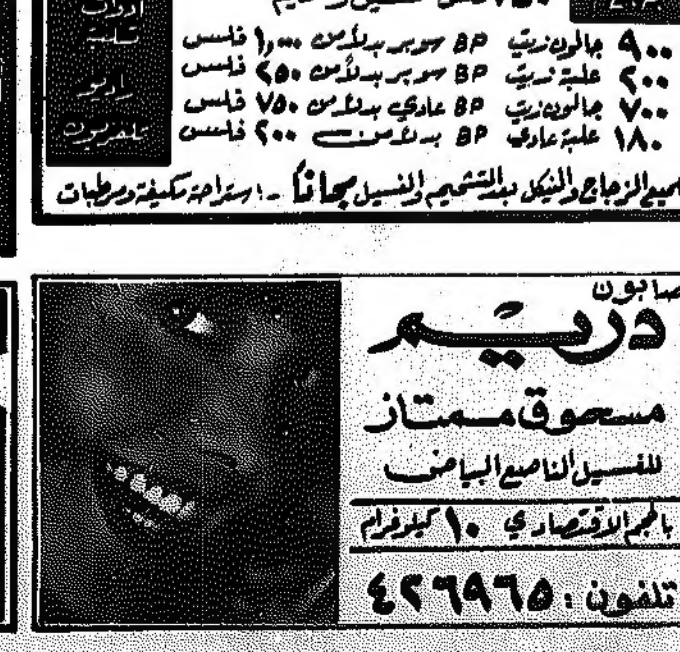 ٩٠٠ جالون زيت BP سوبر بدلاً من ١,٠٠٠ فلس
٢٠٠ علبة زيت BP سوبر بدلاً من ٢٥٠ فلس
٧٠٠ جالون زيت BP عادي بدلاً من ٧٥٠ فلس
١٨٠ علبة عادي BP بدلاً من ٢٠٠ فلس
أدوات
راديو
تلفزيون
الزجاج والنيكل بعد التشحيم والغسيل مجاناً - استراحة مكيفة ومرطبات
صابون
دريم
مسحوق ممتاز
للغسيل الناصع البياض
بالحجم الاقتصادي ١٠ كيلوغرام
تلفون : ٤٢٦٩٦٥